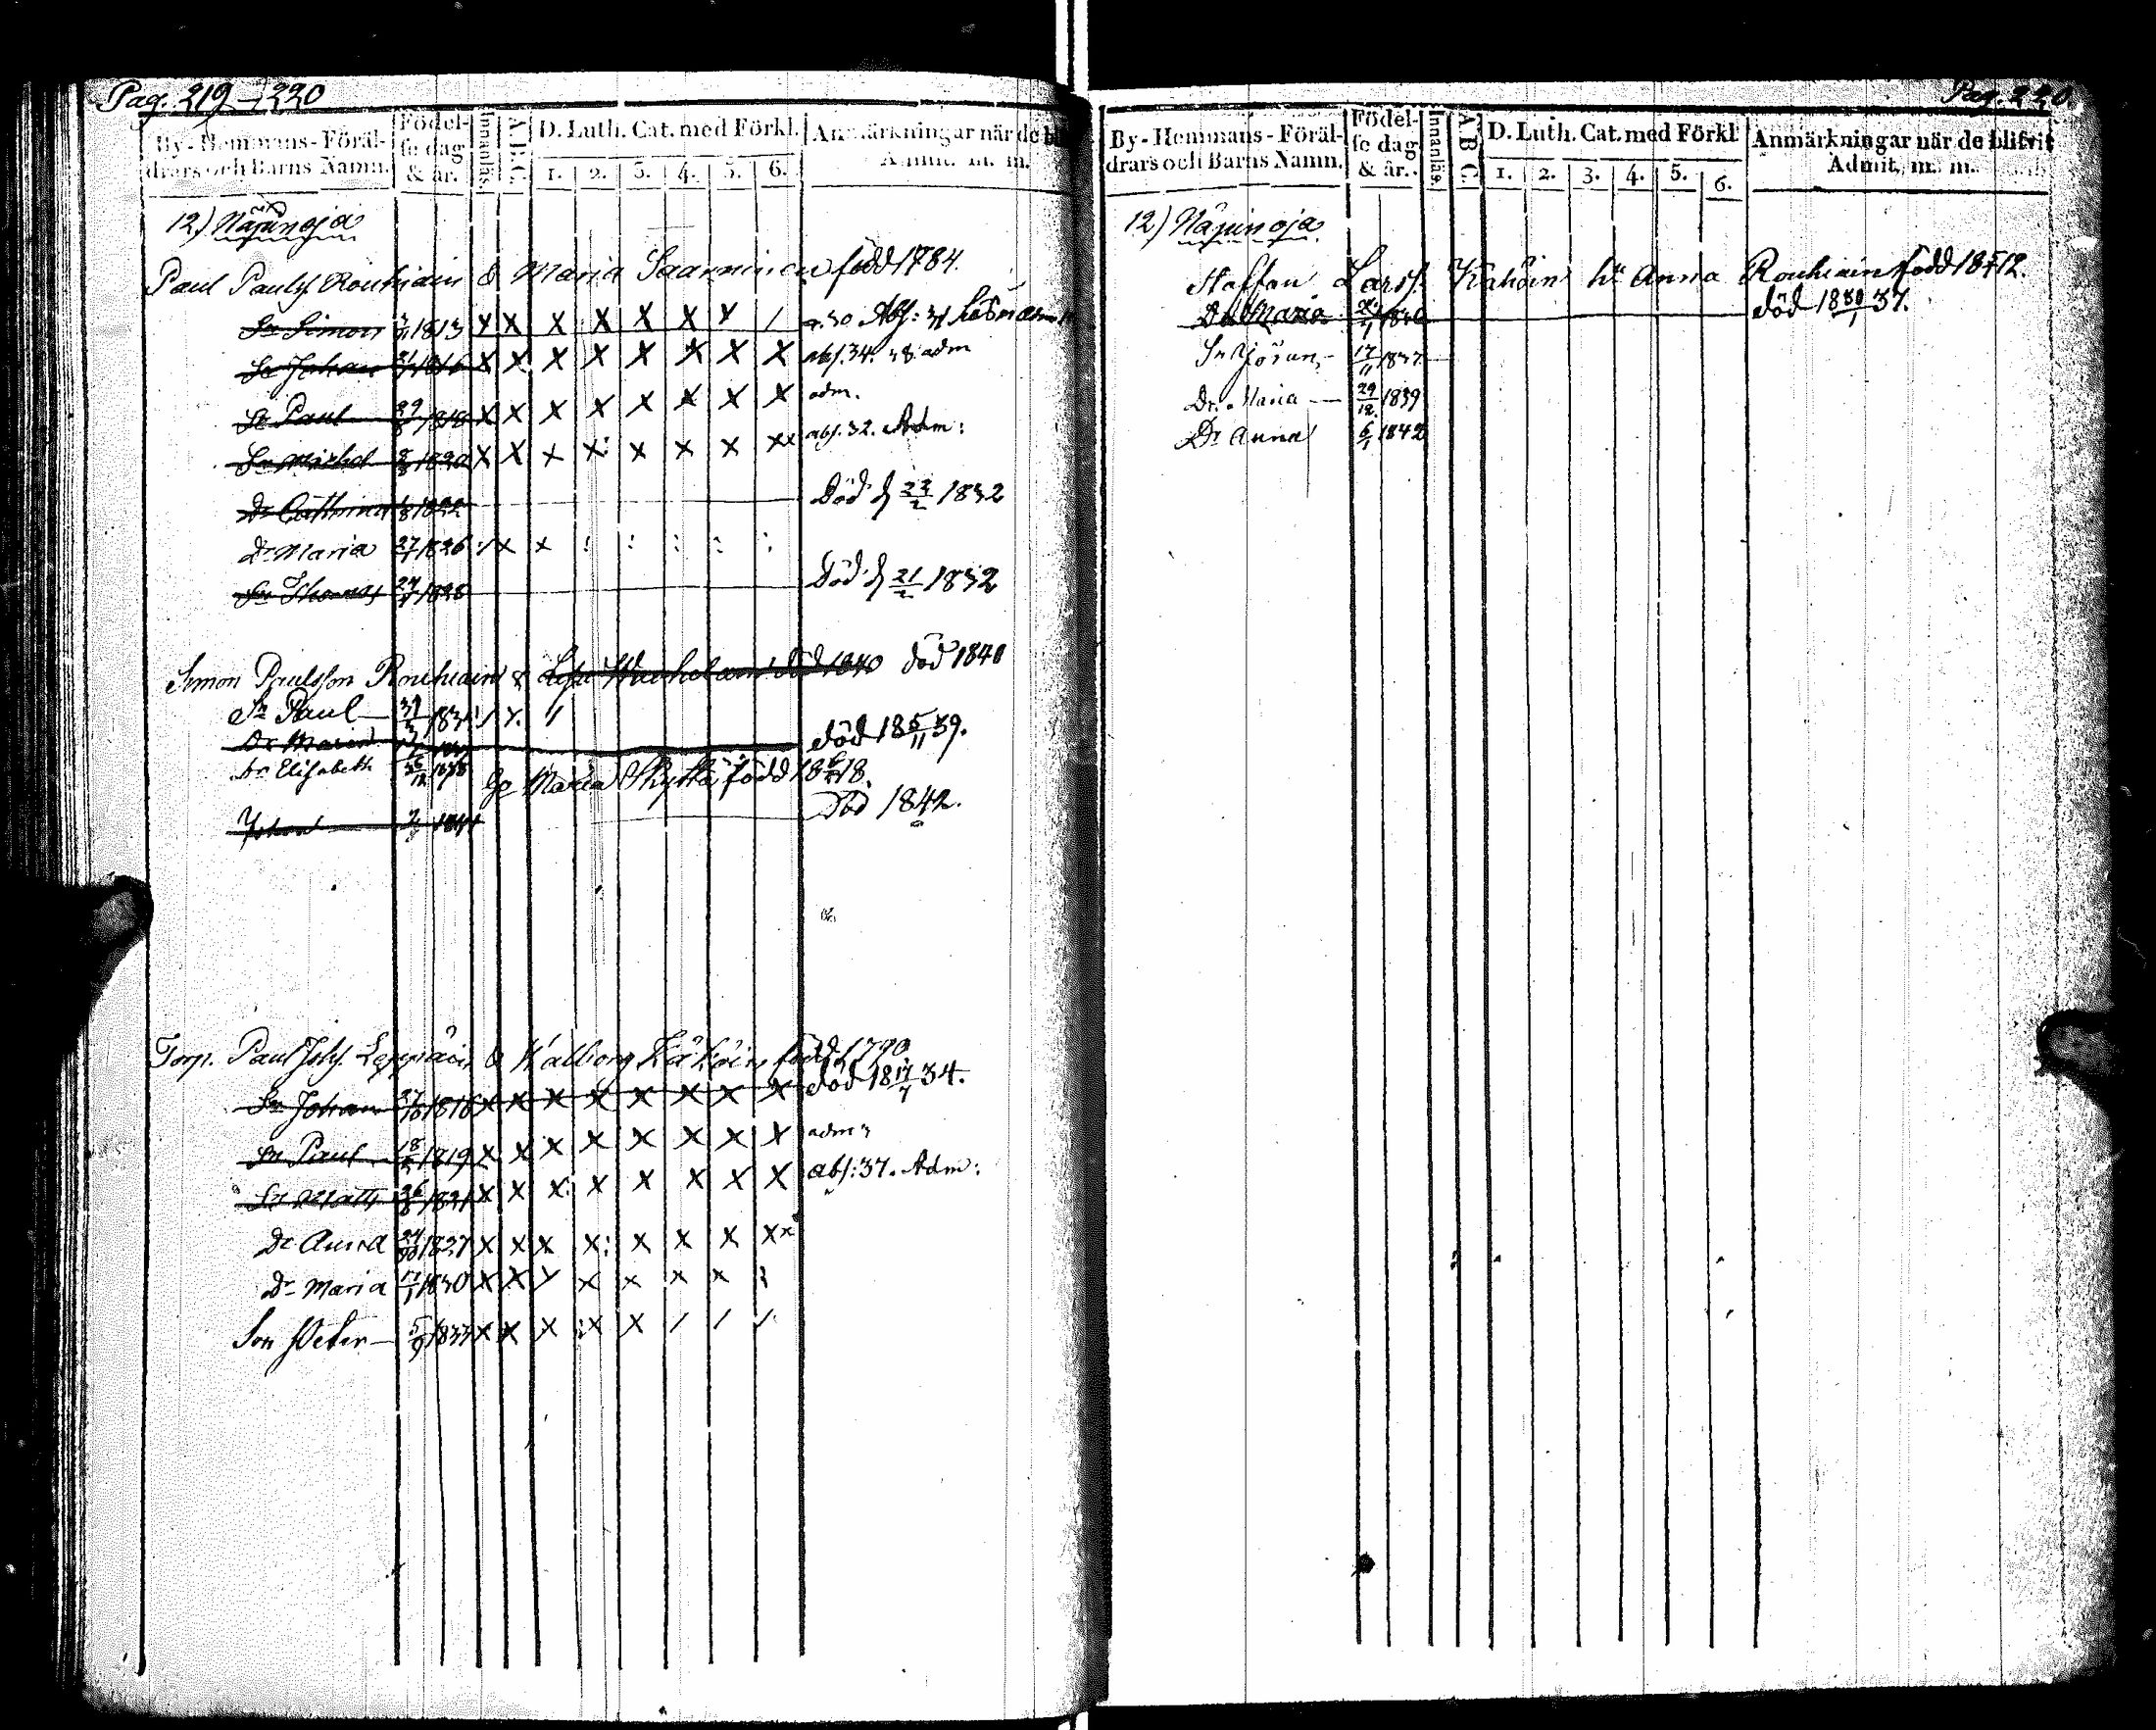 Pag. 219–220
By-Hemmans-Föräl-
drars och Barns Namn.
Födel-
se dag
& år.
Innanläs.
A B C.
D. Luth. Cat. med Förkl.
1. 2. 3. 4. 5. 6.
Anmärkningar när de bl
Admit. m. m.
12.) Näpinoja
Paul Paulss. Rouhiain & Maria Saarninen född 1784.
Sn Simon 1813 x x x x x x x / a. 30 Abs: 31
Sn Johan 1816 x x x x x x x x abs. 34. 38. adm
Sn Paul 29/8 1818 x x x x x x x x adm.
Sn Michel 1820 x x x x: x x x xx abs. 32. Adm:
Dr Cathrina 1822 Död d 23/2 1832
Dr Maria 27/1 1826 / x x : : : : :
Sn Thomas 1828 Död d 21/2 1832
Simon Paulsson Rouhiain & död 1840 död 1840
Sn Paul — 31/3 183 / x. //
Dr Maria död 18 5/11 39.
Dr Elisabeth 1838 Maria Phyttä född 18 18.
Johan 1841 Död 1842.
Torp. Paul Joh. Leppäin & Walborg Kähöin född 1790
Sn Johan 1816 x x x x x x x x död 18 17/7 34.
Sn Paul 18/2 1819 x x x x x x x x adm
Sn Matts 26/8 1821 x x x: x x x x x abs: 37. Adm:
Dr Anna 24/10 1827 x x x x: x x x xx
Dr Maria 17/1 1830 x x x x x x x :
Son Peter — 5/9 1833 x x x x x / / /
Pag. 220
By-Hemmans-Föräl-
drars och Barns Namn.
Födel-
se dag
& år.
Innanläs.
A B C.
D. Luth. Cat. med Förkl
1. 2. 3. 4. 5. 6.
Anmärkningar när de blifvit
Admit. m. m.
12) Näpinoja
Staffan Larss. Kähöin hu Anna Rouhiain född 18 12.
Dr Maria död 18 30/1 37.
Sn Jöran — 17/11 1837
Dr. Maria — 29/12 1839
Dr Anna 6/1 1842